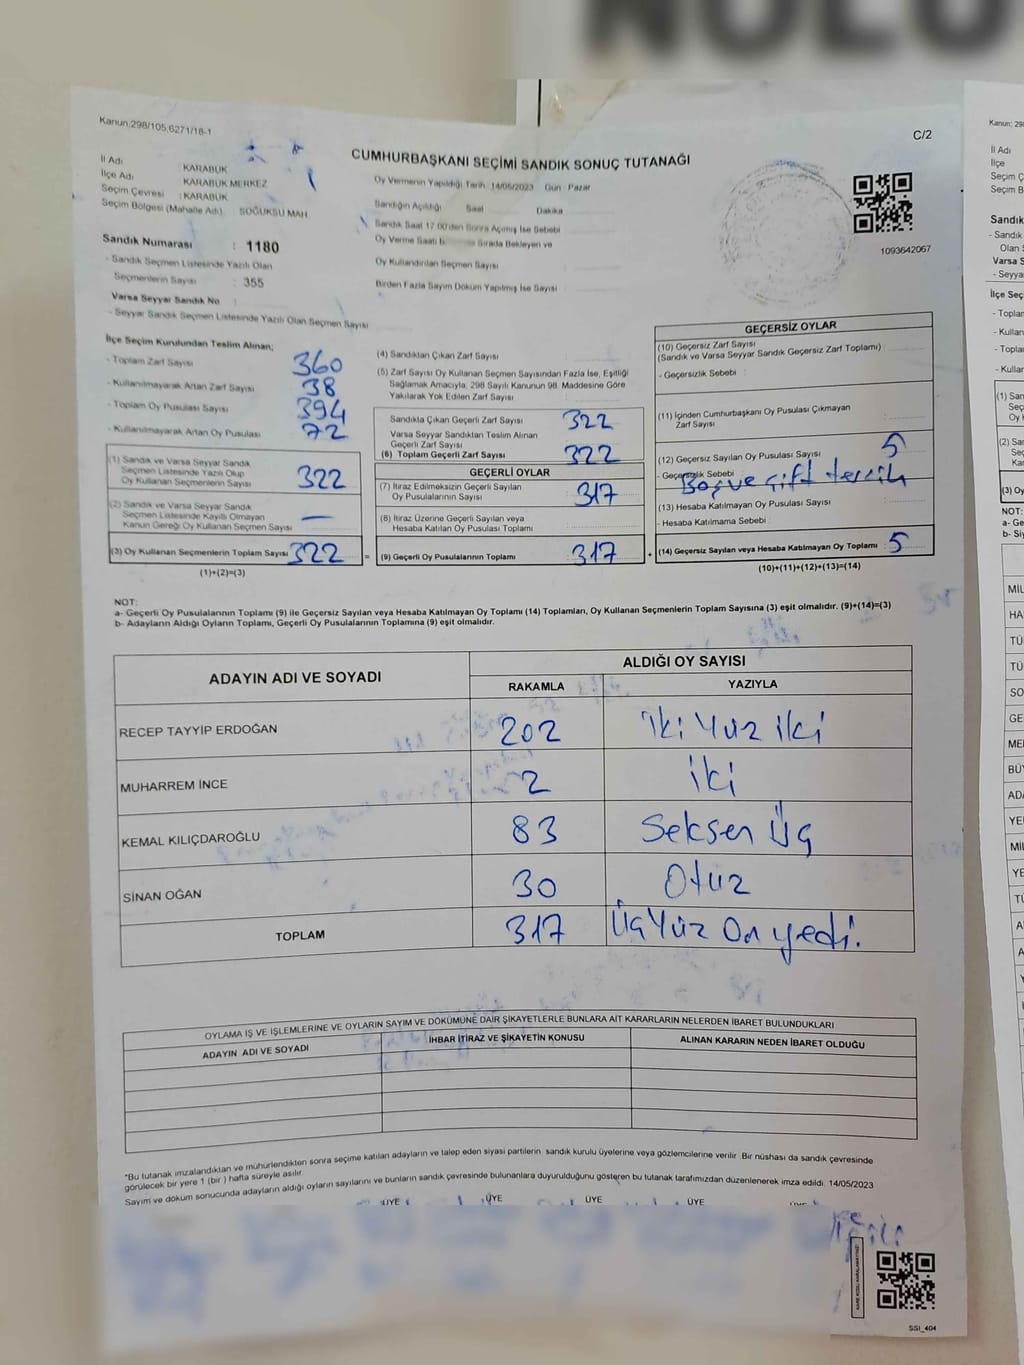 Kanun;298/105,6271/18-1
C/2
CUMHURBAŞKANI SEÇİMİ SANDIK SONUÇ TUTANAĞI
İl Adı KARABUK
İlçe Adı KARABUK MERKEZ
Seçim Çevresi : KARABUK
Seçim Bölgesi (Mahalle Adı) SOĞUKSU MAH
Sandık Numarası : 1180
- Sandık Seçmen Listesinde Yazılı Olan
Seçmenlerin Sayısı : 355
Varsa Seyyar Sandık No :
- Seyyar Sandık Seçmen Listesinde Yazılı Olan Seçmen Sayısı
Oy Vermenin Yapıldığı Tarih 14/05/2023 Gün Pazar
Sandığın Açıldığı Saat Dakika
Sandık Saat 17.00'den Sonra Açmış İse Sebebi
Oy Verme Saati Sırada Bekleyen ve
Oy Kullandırılan Seçmen Sayısı
Birden Fazla Sayım Döküm Yapılmış İse Sayısı
1093642067
İlçe Seçim Kurulundan Teslim Alınan;
- Toplam Zarf Sayısı 360
- Kullanılmayarak Artan Zarf Sayısı 38
- Toplam Oy Pusulası Sayısı 394
- Kullanılmayarak Artan Oy Pusulası 72
(1) Sandık ve Varsa Seyyar Sandık
Seçmen Listesinde Yazılı Olup
Oy Kullanan Seçmenlerin Sayısı 322
(2) Sandık ve Varsa Seyyar Sandık
Seçmen Listesinde Kayıtlı Olmayan
Kanun Gereği Oy Kullanan Seçmen Sayısı —
(3) Oy Kullanan Seçmenlerin Toplam Sayısı 322
(1)+(2)=(3)
(4) Sandıktan Çıkan Zarf Sayısı
(5) Zarf Sayısı Oy Kullanan Seçmen Sayısından Fazla İse, Eşitliği
Sağlamak Amacıyla, 298 Sayılı Kanunun 98. Maddesine Göre
Yakılarak Yok Edilen Zarf Sayısı
Sandıkta Çıkan Geçerli Zarf Sayısı 322
Varsa Seyyar Sandıktan Teslim Alınan
Geçerli Zarf Sayısı
(6) Toplam Geçerli Zarf Sayısı 322
GEÇERLİ OYLAR
(7) İtiraz Edilmeksizin Geçerli Sayılan
Oy Pusulalarının Sayısı 317
(8) İtiraz Üzerine Geçerli Sayılan veya
Hesaba Katılan Oy Pusulası Toplamı
= (9) Geçerli Oy Pusulalarının Toplamı 317 +
GEÇERSİZ OYLAR
(10) Geçersiz Zarf Sayısı
(Sandık ve Varsa Seyyar Sandık Geçersiz Zarf Toplamı) :
- Geçersizlik Sebebi :
(11) İçinden Cumhurbaşkanı Oy Pusulası Çıkmayan
Zarf Sayısı
(12) Geçersiz Sayılan Oy Pusulası Sayısı 5
- Geçersizlik Sebebi Boş ve çift tercih
(13) Hesaba Katılmayan Oy Pusulası Sayısı
- Hesaba Katılmama Sebebi
(14) Geçersiz Sayılan veya Hesaba Katılmayan Oy Toplamı : 5
(10)+(11)+(12)+(13)=(14)
NOT:
a- Geçerli Oy Pusulalarının Toplamı (9) ile Geçersiz Sayılan veya Hesaba Katılmayan Oy Toplamı (14) Toplamları, Oy Kullanan Seçmenlerin Toplam Sayısına (3) eşit olmalıdır. (9)+(14)=(3)
b- Adayların Aldığı Oyların Toplamı, Geçerli Oy Pusulalarının Toplamına (9) eşit olmalıdır.
ADAYIN ADI VE SOYADI
ALDIĞI OY SAYISI
RAKAMLA YAZIYLA
RECEP TAYYİP ERDOĞAN 202 iki Yüz iki
MUHARREM İNCE 2 iki
KEMAL KILIÇDAROĞLU 83 Seksen Üç
SİNAN OĞAN 30 Otuz
TOPLAM 317 Üç Yüz On yedi.
OYLAMA İŞ VE İŞLEMLERİNE VE OYLARIN SAYIM VE DÖKÜMÜNE DAİR ŞİKAYETLERLE BUNLARA AİT KARARLARIN NELERDEN İBARET BULUNDUKLARI
ADAYIN ADI VE SOYADI İHBAR İTİRAZ VE ŞİKAYETİN KONUSU ALINAN KARARIN NEDEN İBARET OLDUĞU
*Bu tutanak imzalandıktan ve mühürlendikten sonra seçime katılan adayların ve talep eden siyasi partilerin sandık kurulu üyelerine veya gözlemcilerine verilir. Bir nüshası da sandık çevresinde
görülecek bir yere 1 (bir) hafta süreyle asılır.
Sayım ve döküm sonucunda adayların aldığı oyların sayılarını ve bunların sandık çevresinde bulunanlara duyurulduğunu gösteren bu tutanak tarafımızdan düzenlenerek imza edildi. 14/05/2023
ÜYE ÜYE ÜYE ÜYE
SSİ_404
Kanun; 298
İl Adı
İlçe
Seçim Ç
Seçim B